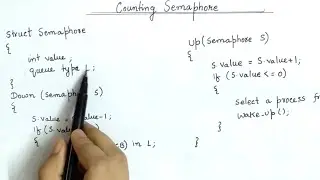 Counting Semaphore
Struct Semaphore
{
int value;
queue type L;
}
Down (Semaphore S)
{
S.value = value-1;
if (S.
) in L;
Up (Semaphore S)
{
S.value = S.value+1;
if (S.value <= 0)
{
Select a process fr
wake-up();
}
}